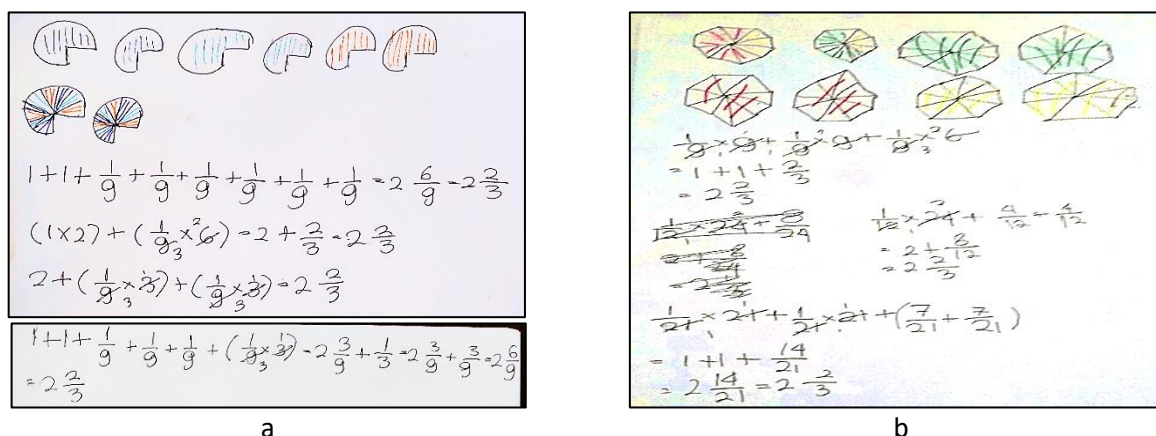 1+1+1/9+1/9+1/9+1/9+1/9+1/9=2 6/9=2 2/3
(1×2)+(1/9×6)=2+2/3=2 2/3
2+(1/9×3)+(1/9×3)=2 2/3
1+1+1/9+1/9+1/9+(1/9×3)=2 3/9+1/3=2 3/9+3/9=2 6/9
=2 2/3
a
1/9×9+1/9×9+1/9×6
=1+1+2/3
=2 2/3
1/12×24+8/24
1/12×24+4/12+4/12
=2+8/12
=2 2/3
1/21×21+1/21×21+(7/21+7/21)
=1+1+14/21
=2 14/21=2 2/3
b